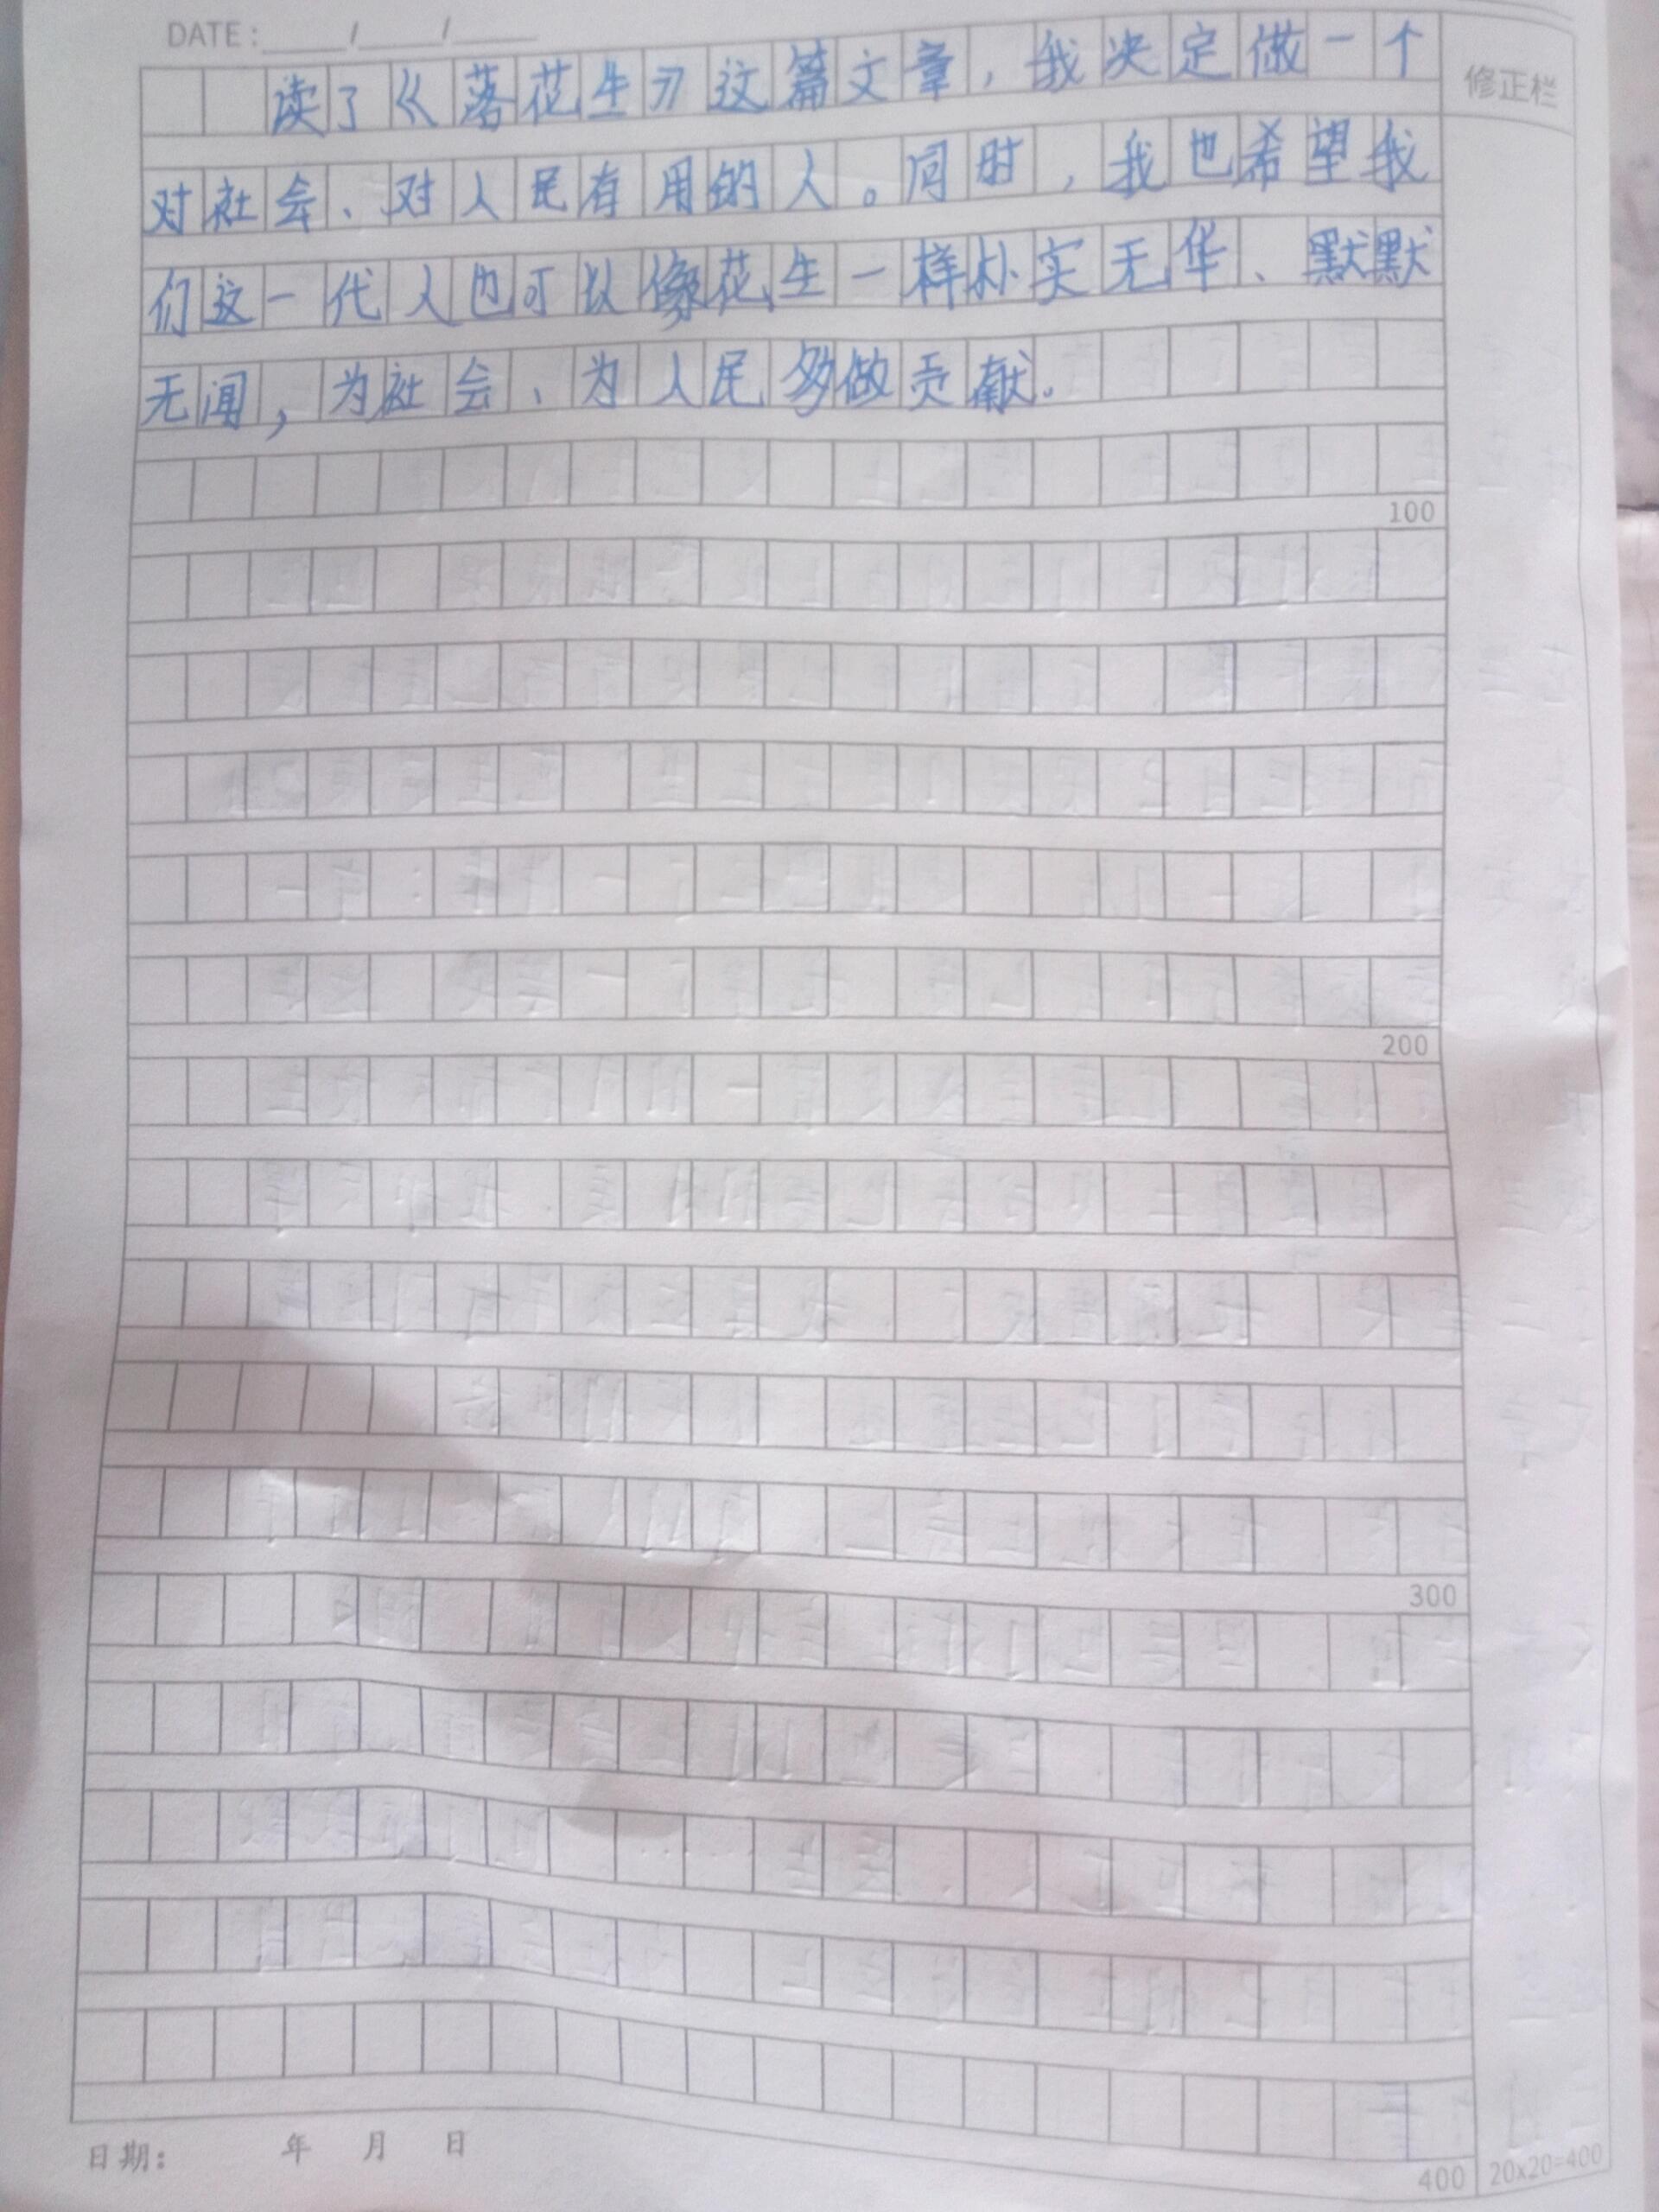 DATE：____/____/____
读了《落花生》这篇文章，我决定做一个
修正栏
对社会、对人民有用的人。同时，我也希望我
们这一代人也可以像花生一样朴实无华、默默
无闻，为社会、为人民多做贡献。
100
200
300
日期： 年 月 日
400
20x20=400